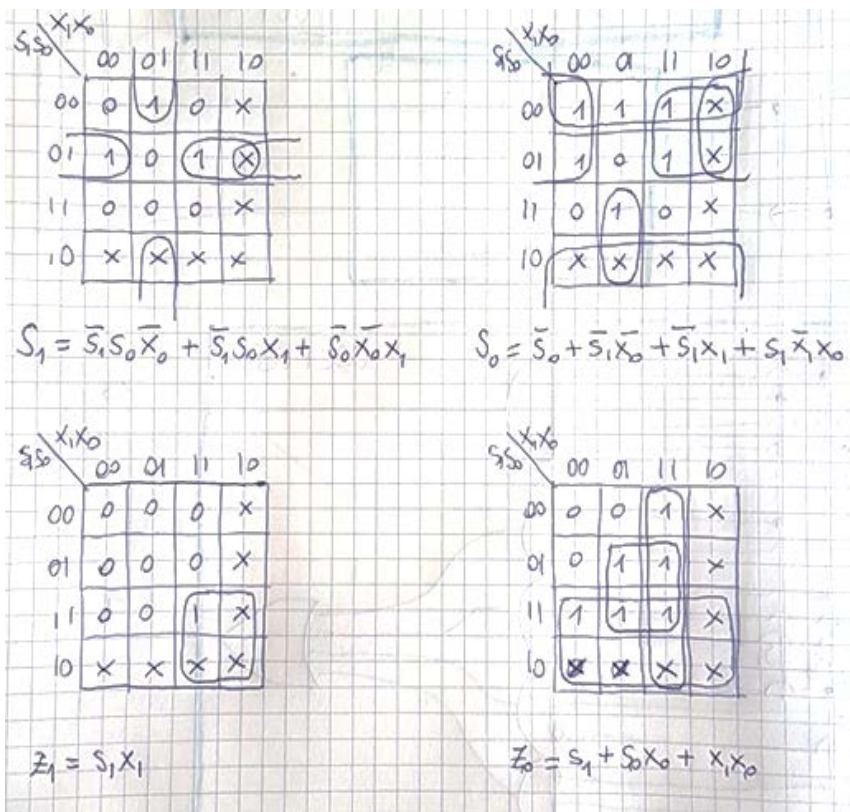 S₁S₀ X₁X₀
00 01 11 10
00 0 1 0 X
01 1 0 1 X
11 0 0 0 X
10 X X X X
S₁ = S̅₁S₀X̅₀ + S̅₁S₀X₁ + S̅₀X̅₀X₁
S₁S₀ X₁X₀
00 01 11 10
00 1 1 1 X
01 1 0 1 X
11 0 1 0 X
10 X X X X
S₀ = S̅₀ + S̅₁X̅₀ + S̅₁X₁ + S₁X̅₁X₀
S₁S₀ X₁X₀
00 01 11 10
00 0 0 0 X
01 0 0 0 X
11 0 0 1 X
10 X X X X
Z₁ = S₁X₁
S₁S₀ X₁X₀
00 01 11 10
00 0 0 1 X
01 0 1 1 X
11 1 1 1 X
10 X X X X
Z₀ = S₁ + S₀X₀ + X₁X₀